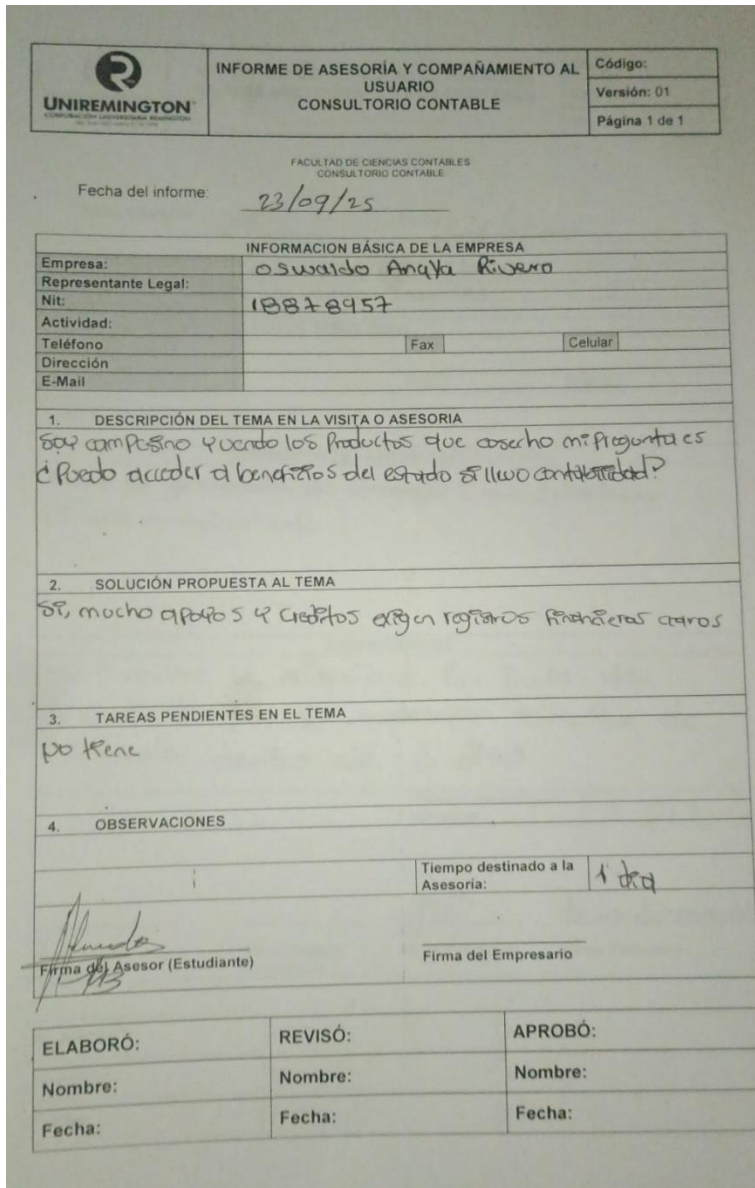 UNIREMINGTON
CORPORACIÓN UNIVERSITARIA REMINGTON
INFORME DE ASESORÍA Y COMPAÑAMIENTO AL
USUARIO
CONSULTORIO CONTABLE
Código:
Versión: 01
Página 1 de 1
FACULTAD DE CIENCIAS CONTABLES
CONSULTORIO CONTABLE
Fecha del informe: 23/09/25
INFORMACION BÁSICA DE LA EMPRESA
Empresa: Oswaldo Anaya Rivero
Representante Legal:
Nit: 18878957
Actividad:
Teléfono Fax Celular
Dirección
E-Mail
1. DESCRIPCIÓN DEL TEMA EN LA VISITA O ASESORIA
Soy campesino y vendo los Productos que cosecho mi Pregunta es
¿Puedo acceder a beneficios del estado si llevo contabilidad?
2. SOLUCIÓN PROPUESTA AL TEMA
Si, mucho apoyos y creditos exigen registros financieros claros
3. TAREAS PENDIENTES EN EL TEMA
No tiene
4. OBSERVACIONES
Tiempo destinado a la
Asesoría: 1 dia
Firma del Asesor (Estudiante)
Firma del Empresario
ELABORÓ: REVISÓ: APROBÓ:
Nombre: Nombre: Nombre:
Fecha: Fecha: Fecha: